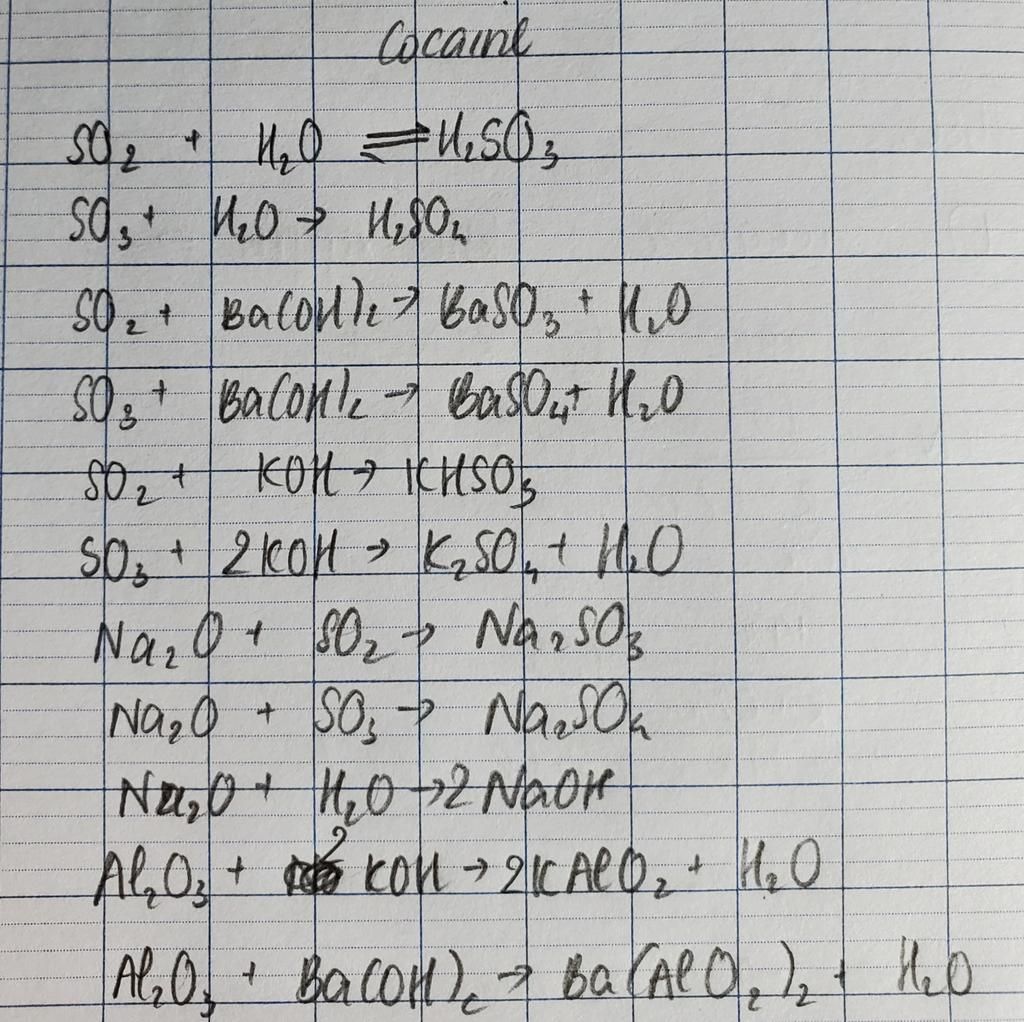 Cocaine
SO₂ + H₂O ⇌ H₂SO₃
SO₃ + H₂O → H₂SO₄
SO₂ + Ba(OH)₂ → BaSO₃ + H₂O
SO₃ + Ba(OH)₂ → BaSO₄ + H₂O
SO₂ + KOH → KHSO₃
SO₃ + 2KOH → K₂SO₄ + H₂O
Na₂O + SO₂ → Na₂SO₃
Na₂O + SO₃ → Na₂SO₄
Na₂O + H₂O → 2NaOH
Al₂O₃ + 2KOH → 2KAlO₂ + H₂O
Al₂O₃ + Ba(OH)₂ → Ba(AlO₂)₂ + H₂O